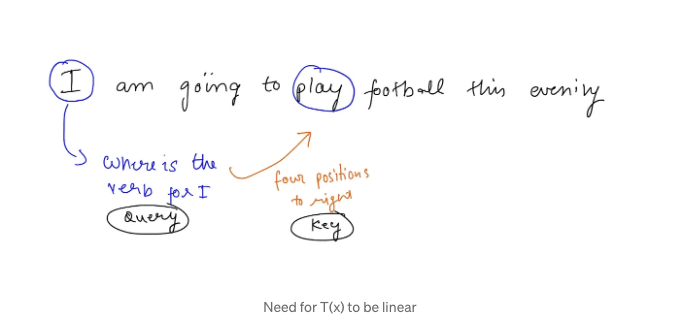 I am going to play football this evening
where is the
verb for I
Query
four positions
to right
Key
Need for T(x) to be linear